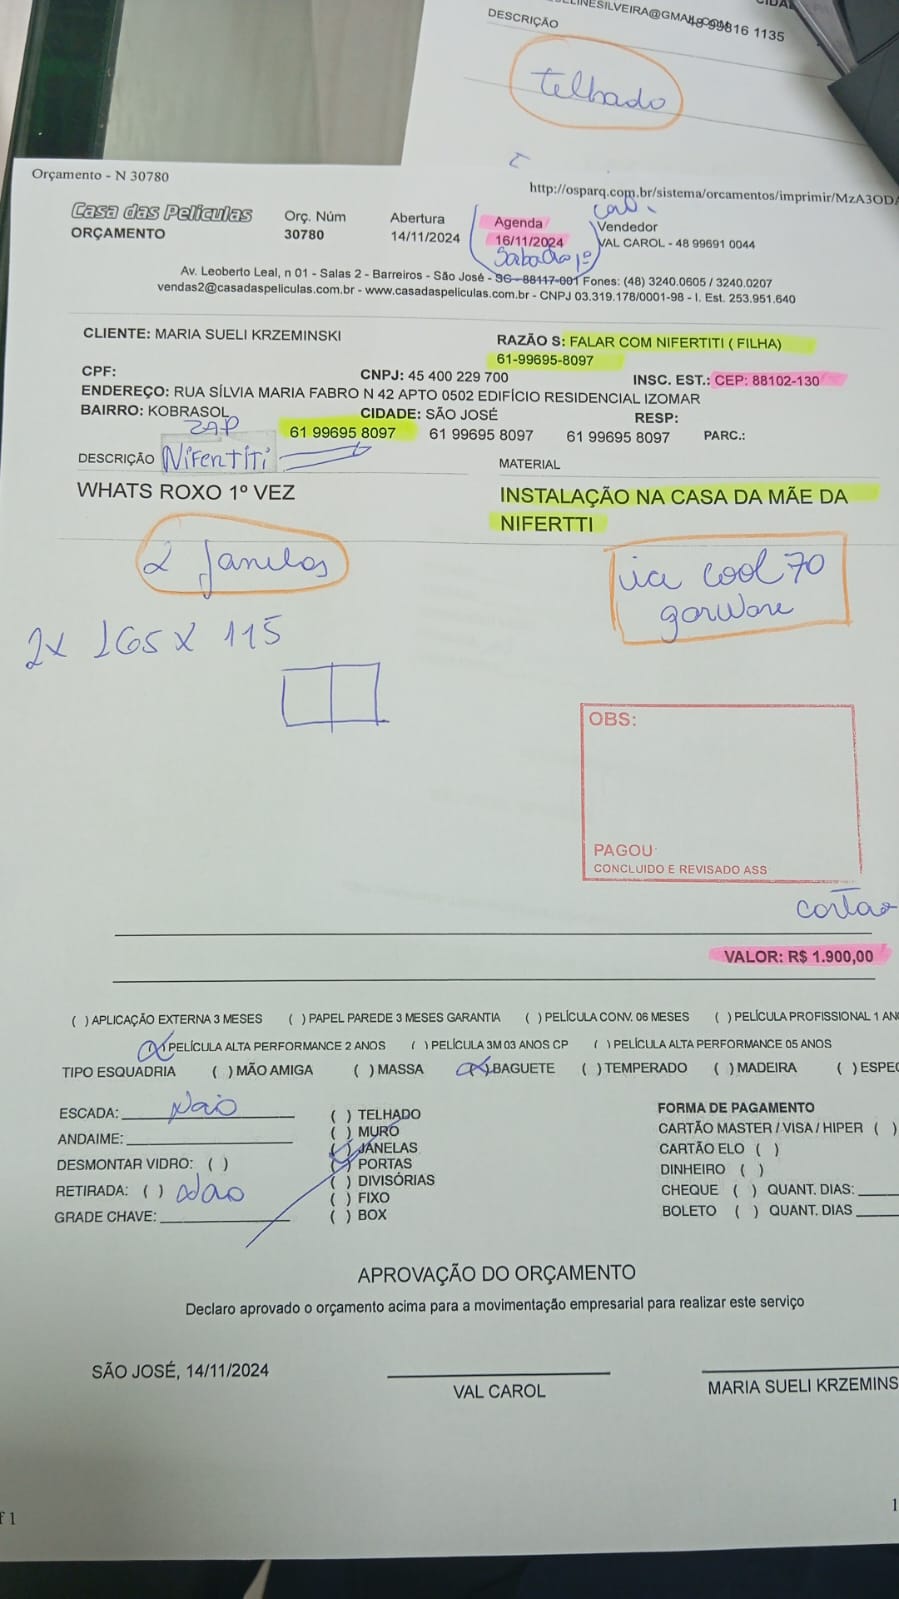 DESCRIÇÃO
48 99816 1135
telhado
Orçamento - N 30780
http://osparq.com.br/sistema/orcamentos/imprimir/MzA3ODA
Casa das Películas
ORÇAMENTO
Orç. Núm
30780
Abertura
14/11/2024
Agenda
16/11/2024
Sabado 1º
Vendedor
VAL CAROL - 48 99691 0044
Av. Leoberto Leal, n 01 - Salas 2 - Barreiros - São José - SC - 88117-001 Fones: (48) 3240.0605 / 3240.0207
vendas2@casadaspeliculas.com.br - www.casadaspeliculas.com.br - CNPJ 03.319.178/0001-98 - I. Est. 253.951.640
CLIENTE: MARIA SUELI KRZEMINSKI
RAZÃO S: FALAR COM NIFERTITI ( FILHA)
61-99695-8097
CPF:
CNPJ: 45 400 229 700
INSC. EST.: CEP: 88102-130
ENDEREÇO: RUA SÍLVIA MARIA FABRO N 42 APTO 0502 EDIFÍCIO RESIDENCIAL IZOMAR
BAIRRO: KOBRASOL
CIDADE: SÃO JOSÉ
RESP:
ZAP
61 99695 8097 61 99695 8097 61 99695 8097 PARC.:
DESCRIÇÃO Nifertiti
MATERIAL
WHATS ROXO 1º VEZ
INSTALAÇÃO NA CASA DA MÃE DA
NIFERTTI
2 Janelas
cool 70
garware
2x 165 x 115
OBS:
PAGOU:
CONCLUIDO E REVISADO ASS
VALOR: R$ 1.900,00
( ) APLICAÇÃO EXTERNA 3 MESES ( ) PAPEL PAREDE 3 MESES GARANTIA ( ) PELÍCULA CONV. 06 MESES ( ) PELÍCULA PROFISSIONAL 1 AN
( ) PELÍCULA ALTA PERFORMANCE 2 ANOS ( ) PELÍCULA 3M 03 ANOS CP ( ) PELÍCULA ALTA PERFORMANCE 05 ANOS
TIPO ESQUADRIA ( ) MÃO AMIGA ( ) MASSA ( ) BAGUETE ( ) TEMPERADO ( ) MADEIRA ( ) ESPEC
ESCADA: Não
ANDAIME:
DESMONTAR VIDRO: ( )
RETIRADA: ( ) Não
GRADE CHAVE:
( ) TELHADO
( ) MURO
( ) JANELAS
( ) PORTAS
( ) DIVISÓRIAS
( ) FIXO
( ) BOX
FORMA DE PAGAMENTO
CARTÃO MASTER / VISA / HIPER ( )
CARTÃO ELO ( )
DINHEIRO ( )
CHEQUE ( ) QUANT. DIAS:
BOLETO ( ) QUANT. DIAS
APROVAÇÃO DO ORÇAMENTO
Declaro aprovado o orçamento acima para a movimentação empresarial para realizar este serviço
SÃO JOSÉ, 14/11/2024
VAL CAROL
MARIA SUELI KRZEMINS
f 1
1